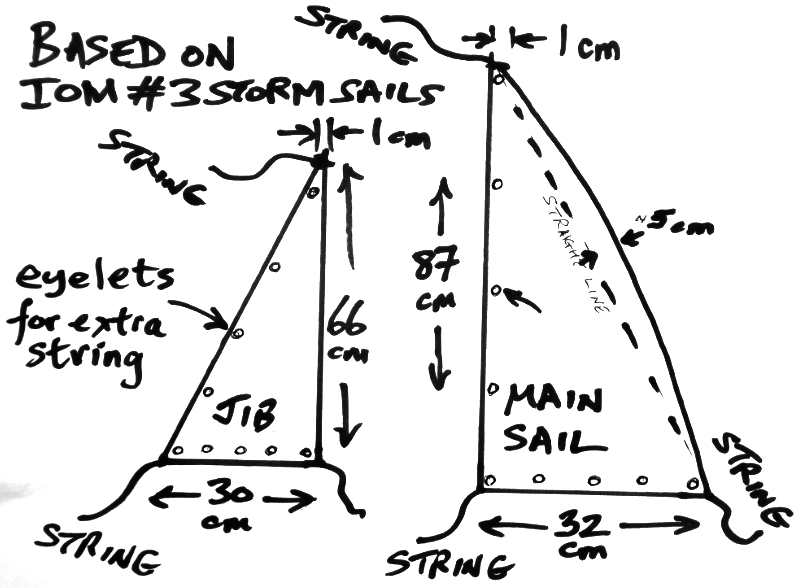 BASED ON
IOM #3 STORM SAILS
STRING
1 cm
STRING
1 cm
eyelets
for extra
string
66
cm
JIB
30
cm
STRING
87
cm
STRAIGHT LINE
~5cm
MAIN
SAIL
32
cm
STRING
STRING